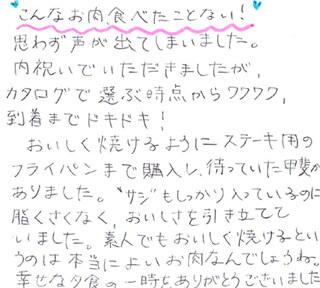 "こんなお肉食べたことない!"
思わず声が出てしまいました。
内祝いでいただきましたが、
カタログで選ぶ時点からワクワク,
到着までドキドキ!
おいしく焼けるようにステーキ用の
フライパンまで購入し、待っていた甲斐が
ありました。"サシ"もしっかり入っているのに
脂くさくなく、おいしさを引き立てて
いました。素人でもおいしく焼けるとい
うのは本当によいお肉なんでしょうね。
幸せな夕食の一時をありがとうございました